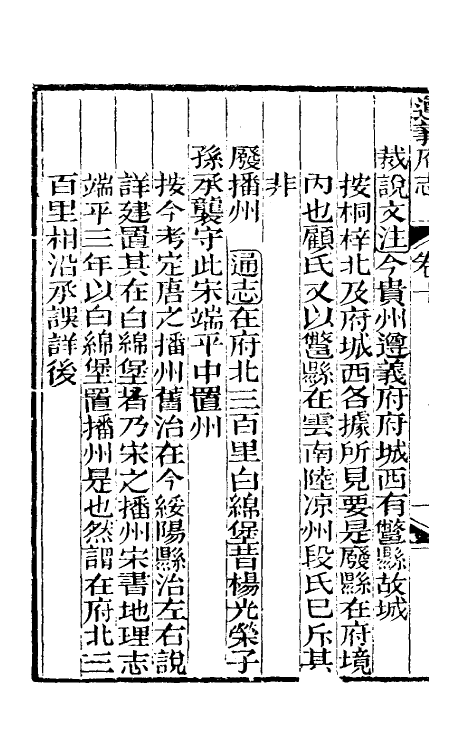 遵義府志
卷十
裁說文注今貴州遵義府府城西有鷩縣故城
按桐梓北及府城西各據所見要是廢縣在府境
內也顧氏又以鷩縣在雲南陸凉州段氏已斥其
非
廢播州 通志在府北三百里白綿堡昔楊光榮子
孫承襲守此宋端平中置州
按今考定唐之播州舊治在今綏陽縣治左右說
詳建置其在白綿堡者乃宋之播州宋書地理志
端平三年以白綿堡置播州是也然謂在府北三
百里相沿承誤詳後